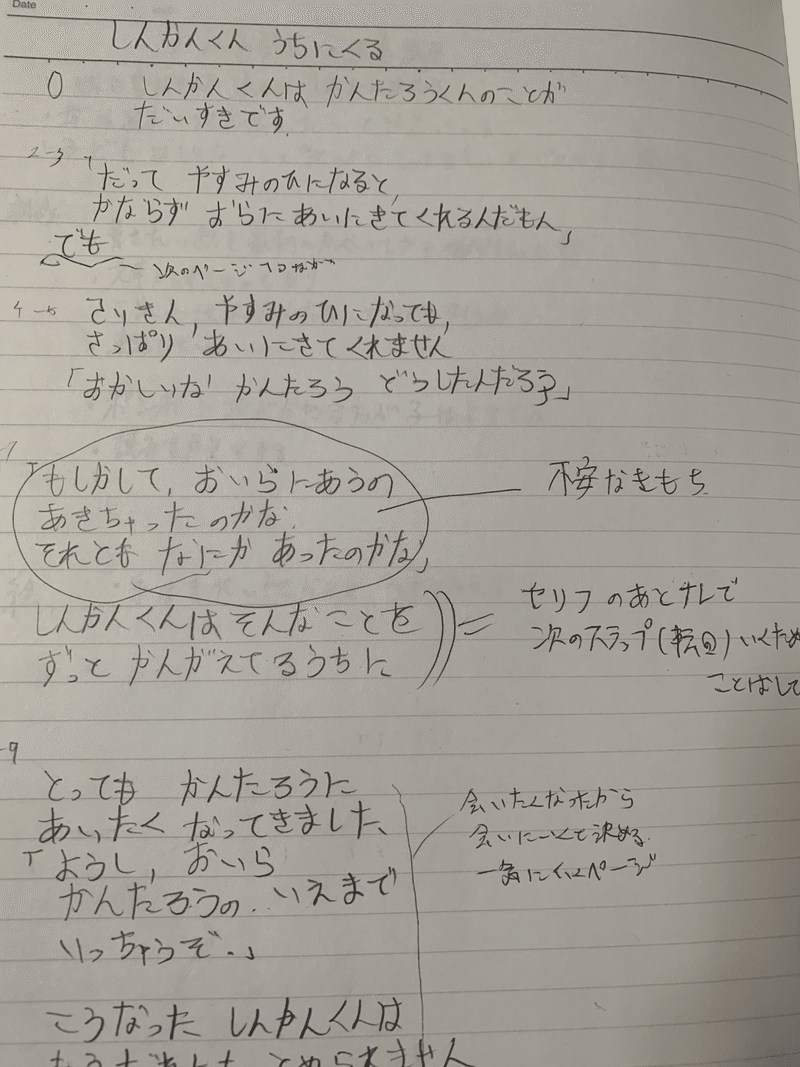 Date
しんかんくん うちにくる
0 しんかんくんは かんたろうくんのことが
だいすきです。
2-3 「だって やすみのひになると、
かならず おらに あいにきてくれるんだもん」
でも
次のページ
4-5 さいきん、やすみのひになっても、
さっぱり あいにきてくれません
「おかしいな かんたろう どうしたんだろう」
7 「もしかして、おいらにあうの
あきちゃったのかな。
それとも なにか あったのかな」
不安なきもち
しんかんくんはそんなことを
ずっと かんがえてるうちに
= セリフのあとナレで
次のステップ(転回)いくため
ことばして
-9
とっても かんたろうに
あいたく なってきました、
「ようし、おいら
かんたろうの いえまで
いっちゃうぞ。」
会いたくなったから
会いにいくと決める。
ページ
こうなった しんかんくんは
もうだれにも とめられません